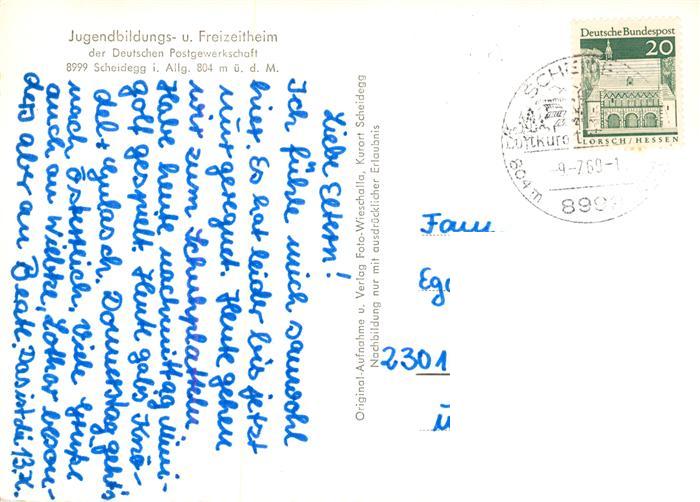 Jugendbildungs- u. Freizeitheim
der Deutschen Postgewerkschaft
8999 Scheidegg i. Allg. 804 m ü. d. M.
Liebe Eltern!
Ich fühle mich sauwohl
hier. Es hat leider bis jetzt
nur geregnet. Heute gehen
wir zum Schuhplatteln
Habe heute nachmittag Mini-
golf gespielt. Heute gabs Knö-
del + Gulasch. Donnerstag geht's
nach Österreich. Viele Grüße
auch an Wiebke, Lothar beson-
ders aber an Beate. Das ist die 13. K.
Original-Aufnahme u. Verlag Foto-Wieschalla, Kurort Scheidegg
Nachbildung nur mit ausdrücklicher Erlaubnis
Deutsche Bundespost
20
LORSCH/HESSEN
Luftkuro
804 m
-9-7.69-1
899
Fam
Eg
2301